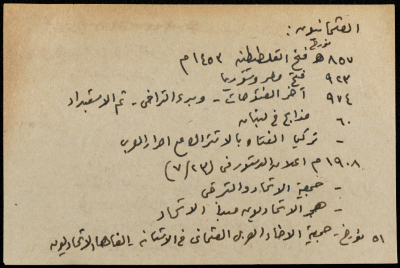 العثمانيون :
تورخ
٨٥٧ هـ فتح القسطنطينية ١٤٥٣ م
٩٢٣ فتح مصر وسوريا
٩٧٤ آخر الفتوحات - وبدء التراخي - ثم الاستبداد
٦٠ مذابح في لبنان
- تركيا الفتاة بالاشتراك مع احرار العرب
١٩٠٨ م اعلان الدستور في (٢٣/٧)
- جمعية الاتحاد والترقي
- هجر الاتحاديون مبدأ الاتحاد
٥١ تورخ - جمعية الاخاء العربي العثماني في الاستانة - الغاها الاتحاديون